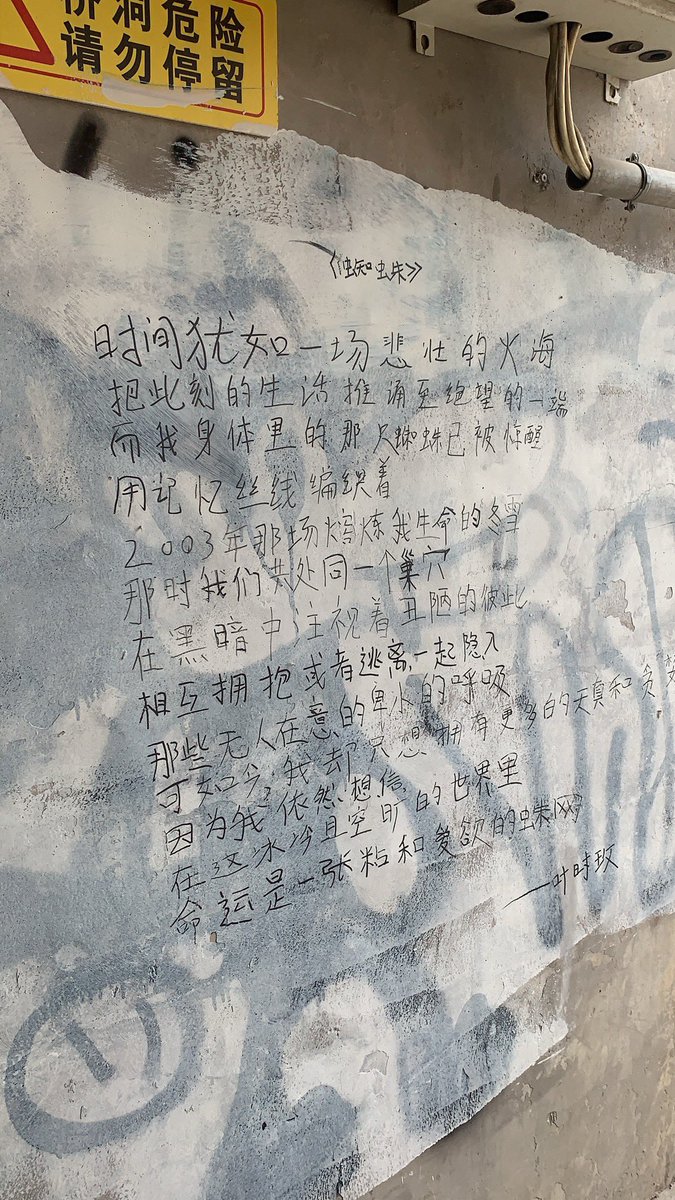 桥洞危险
请勿停留
《蜘蛛》
时间犹如一场悲壮的火海
把此刻的生活推涌至绝望的一端
而我身体里的那只蜘蛛已被惊醒
用记忆丝线编织着
2003年那场熔炼我生命的冬雪
那时我们共处同一个巢穴
在黑暗中注视着丑陋的彼此
相互拥抱或者逃离,一起隐入
那些无人在意的卑水的呼吸
可如今,我却只想拥有更多的天真和贪
因为我依然想信
在这冰冷且空旷的世界里
命运是一张粘和爱欲的蛛网
——叶时玫